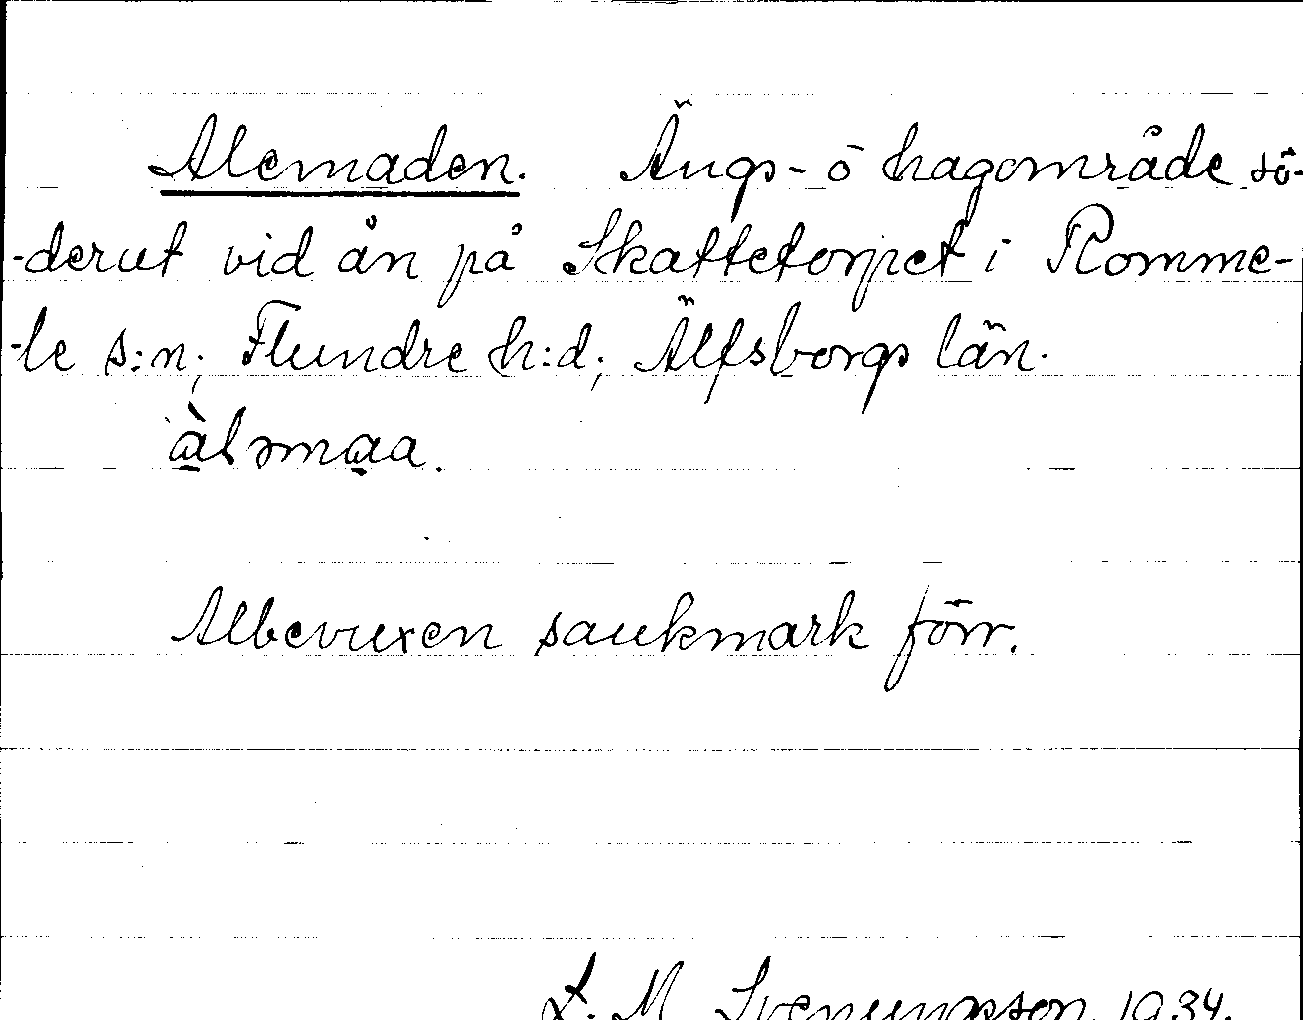 Alemaden. Ängs- o hagområde sö-
-derut vid ån på Skattetorpet i Romme-
-le s:n; Flundre h:d; Älfsborgs län.
àləmaa.
Albevuxen sankmark förr.
L. M. Svenungsson 1934.